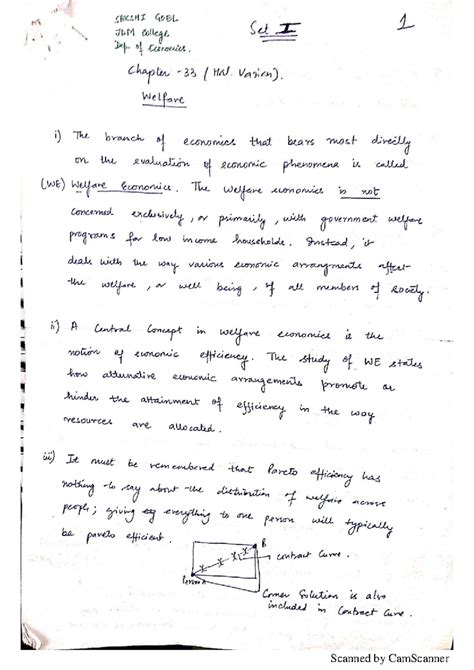 SAKSHI GOEL
JDM College
Dep. of Economics.
Set I
1
Chapter - 33 (Hal. Varian).
Welfare
i) The branch of economics that bears most directly
on the evaluation of economic phenomena is called
(WE) Welfare Economics. The welfare economics is not
concerned exclusively, or primarily, with government welfare
programs for low income households. Instead, it
deals with the way various economic arrangments affect
the welfare, or well being, of all members of society.
ii) A Central Concept in welfare economics is the
notion of economic efficiency. The study of WE states
how alternative economic arrangements promote or
hinder the attainment of efficiency in the way
resources are allocated.
iii) It must be remembered that Pareto efficiency has
nothing to say about the distribution of welfare across
people; giving everything to one person will typically
be pareto efficient.
B
contract curve.
Person A
Corner Solution is also
included in Contract Curve.
Scanned by CamScanner